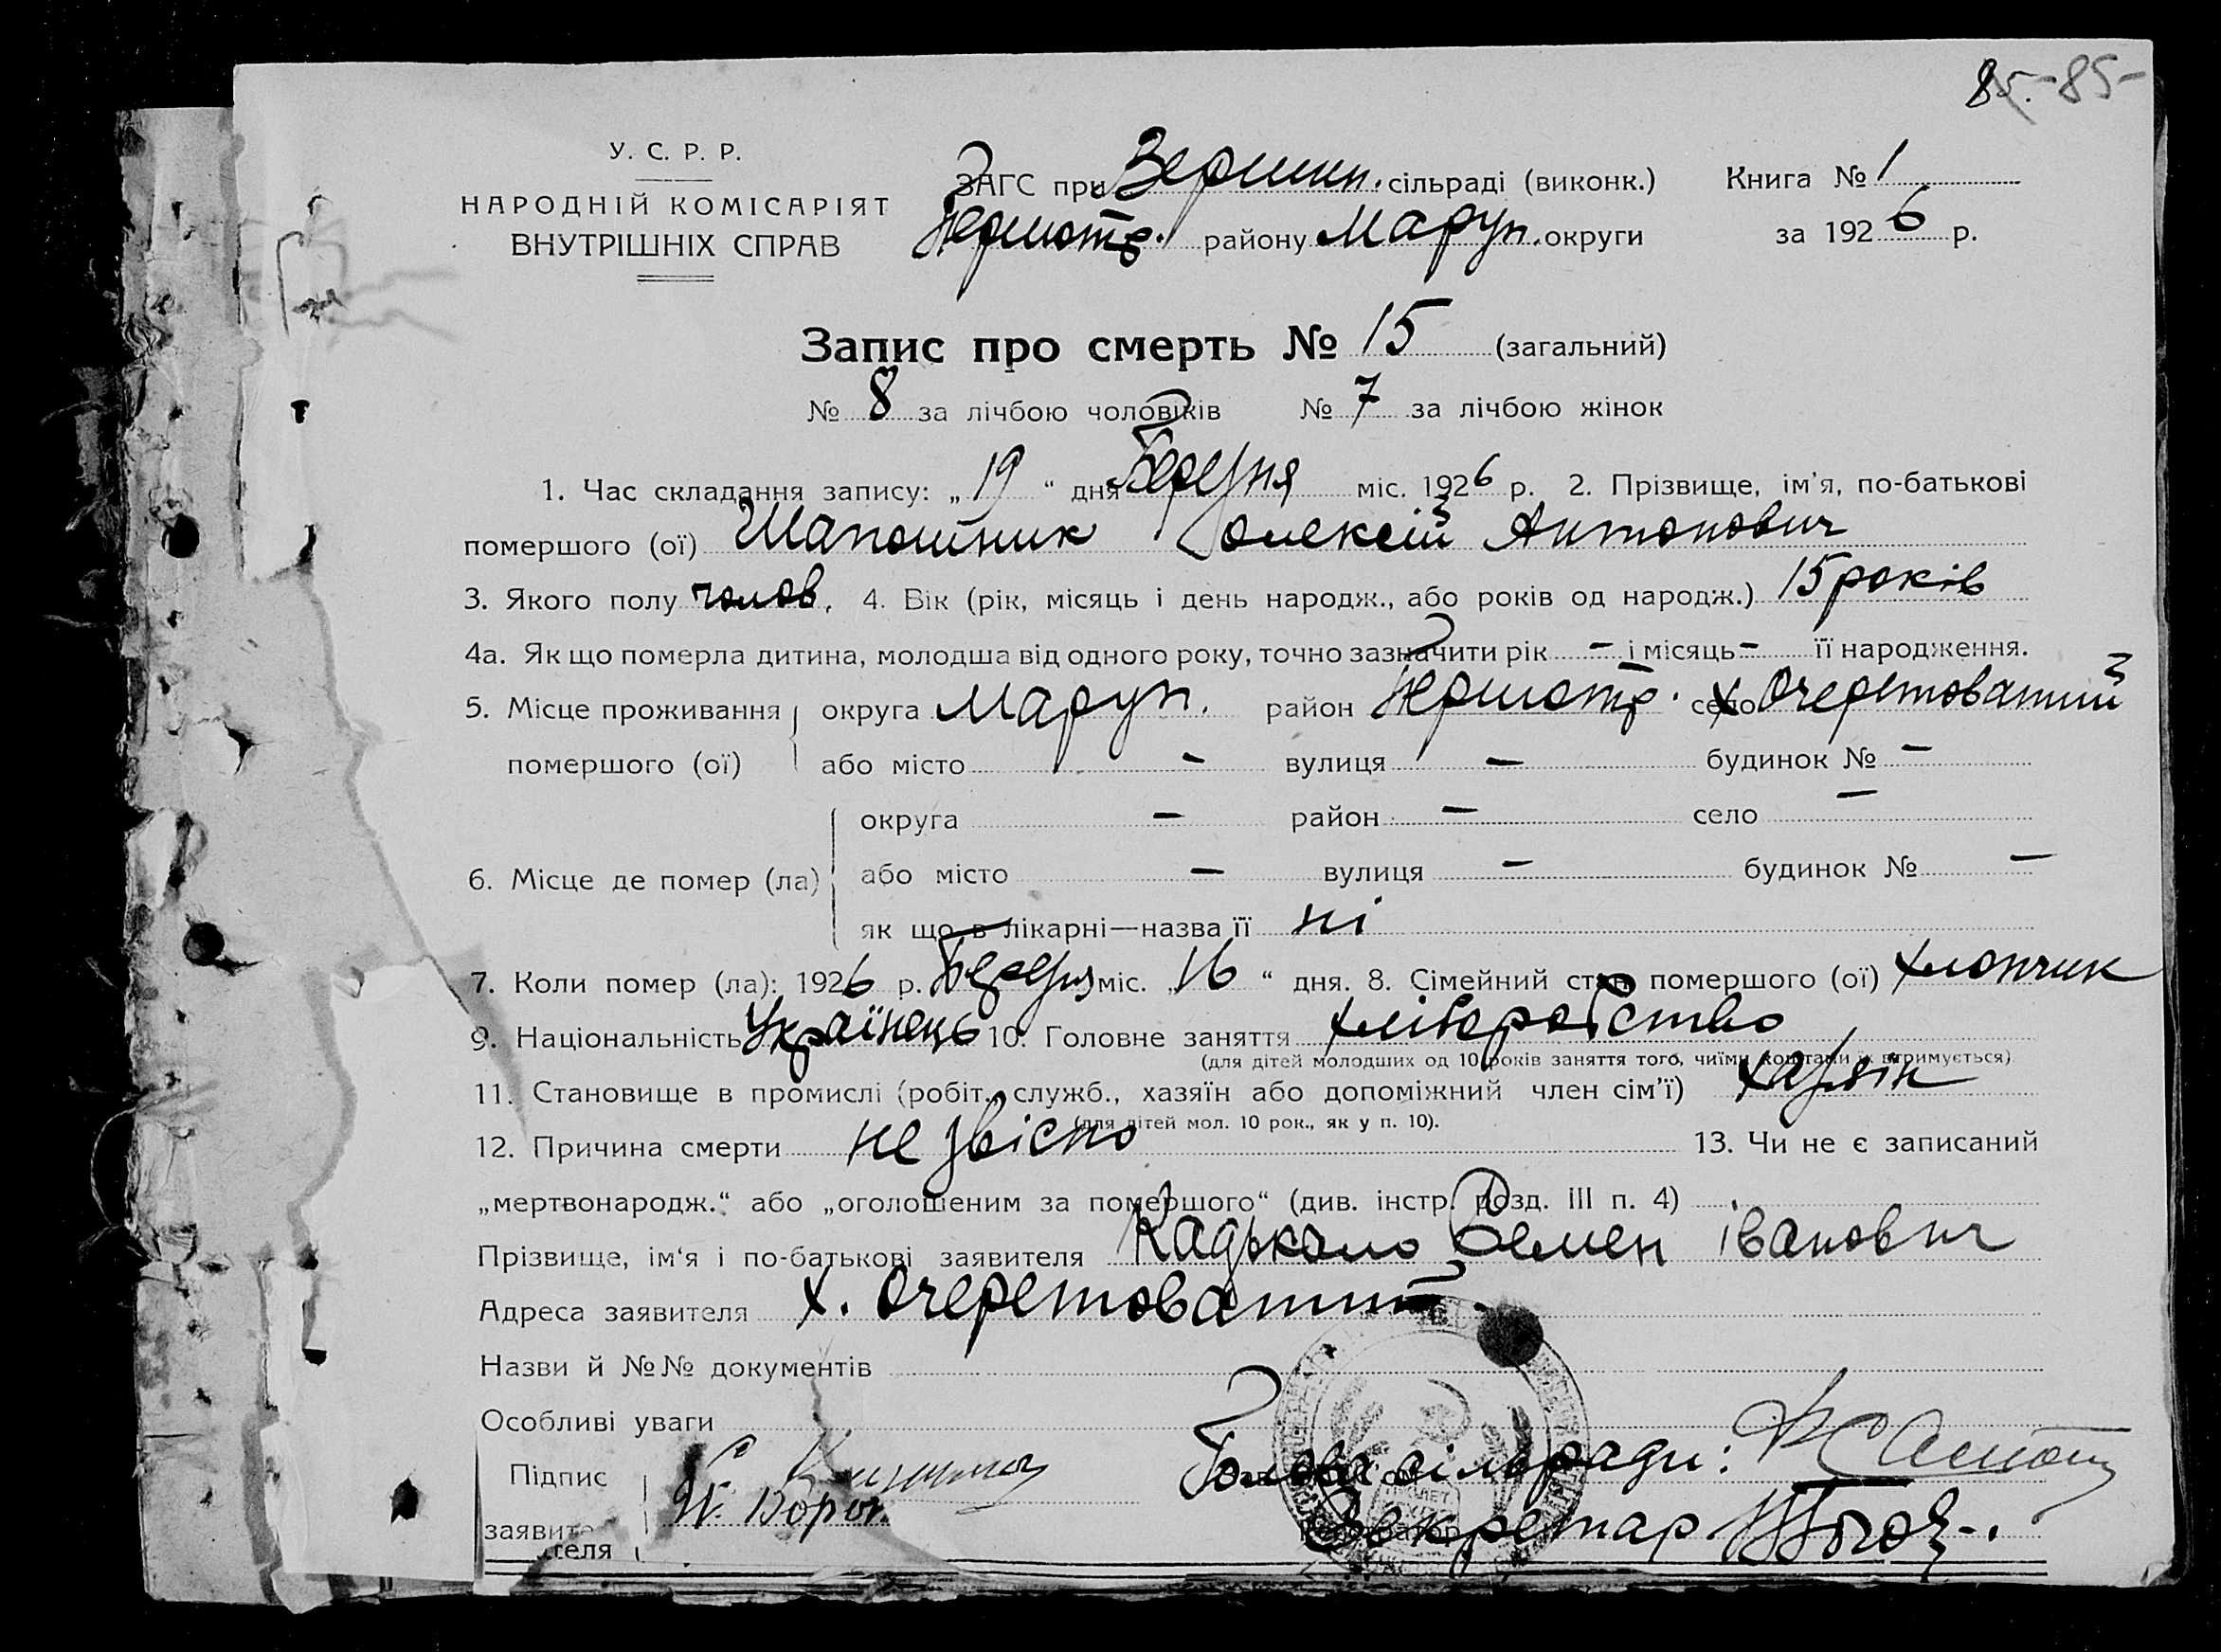 85. -85-
У. С. Р. Р.
НАРОДНІЙ КОМІСАРІЯТ
ВНУТРІШНІХ СПРАВ
ЗАГС при Вершин. сільраді (виконк.) Книга № 1
району Маруп. округи за 1926 р.
Запис про смерть № 15 (загальний)
№ 8 за лічбою чоловіків № 7 за лічбою жінок
1. Час складання запису: „19“ дня Березня міс. 1926 р. 2. Прізвище, ім'я, по-батькові
помершого (ої) Шапошник Олексій Антонович
3. Якого полу чолов. 4. Вік (рік, місяць і день народж., або років од народж.) 15 років
4а. Як що померла дитина, молодша від одного року, точно зазначити рік – і місяць – її народження.
5. Місце проживання округа Маруп. район село х Очеретоватий
помершого (ої) або місто – вулиця – будинок № –
округа – район – село –
6. Місце де помер (ла) або місто – вулиця – будинок № –
як що в лікарні—назва її ні
7. Коли помер (ла): 1926 р. Березня міс. „16“ дня. 8. Сімейний стан помершого (ої) хлопчик
9. Національність Українець 10. Головне заняття хліборобство
(для дітей молодших од 10 років заняття того, чиїми коштами їх втримується)
11. Становище в промислі (робіт., служб., хазяїн або допоміжний член сім'ї) хазяїн
(для дітей мол. 10 рок., як у п. 10).
12. Причина смерти не звісно 13. Чи не є записаний
„мертвонародж.“ або „оголошеним за помершого“ (див. інстр. розд. III п. 4)
Прізвище, ім'я і по-батькові заявителя Кадькало Семен Іванович
Адреса заявителя х. Очеретоватий
Назви й №№ документів
Особливі уваги
Підпис Голова сільради:
заявителя Секретар